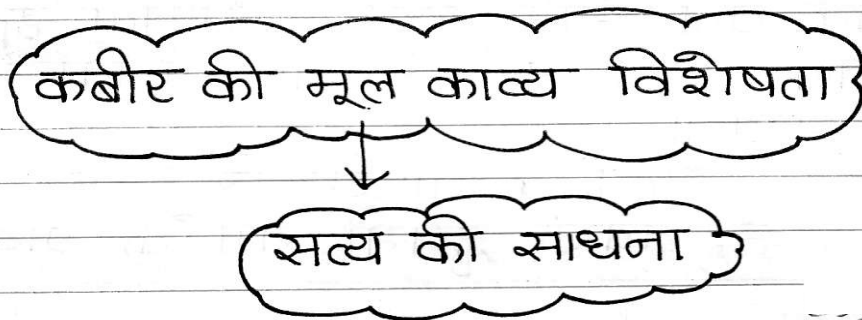 कबीर की मूल काव्य विशेषता
सत्य की साधना